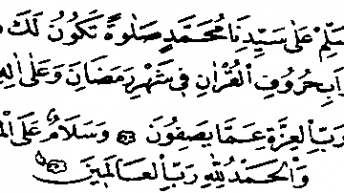 سَلِّمْ عَلٰى سَيِّدِنَا مُحَمَّدٍ صَلٰوةً تَكُونُ لَكَ
بِحُرُوفِ الْقُرْاٰنِ فِى شَهْرِ رَمَضَانَ وَعَلٰى اٰلِهِ
رَبِّ الْعِزَّةِ عَمَّا يَصِفُونَ وَسَلَامٌ عَلَى
وَالْحَمْدُ لِلّٰهِ رَبِّ الْعَالَمِينَ